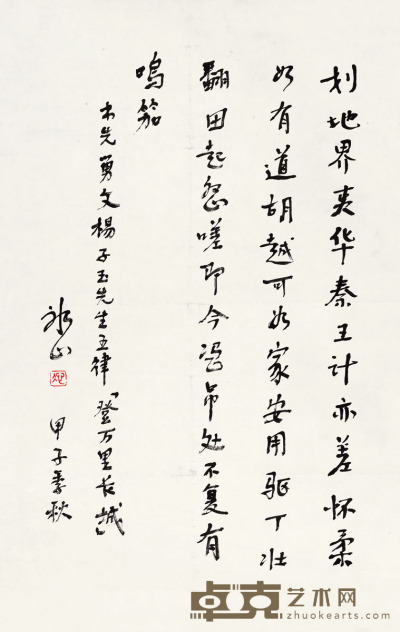 划地界夷华秦王计亦差怀柔
如有道胡越可如家安用驱丁壮
翻田起怨嗟即今凭吊处不复有
鳴笳
先舅父楊子玉先生五律「登万里长城」
甲子季秋
卓克艺术网
zhuokearts.com